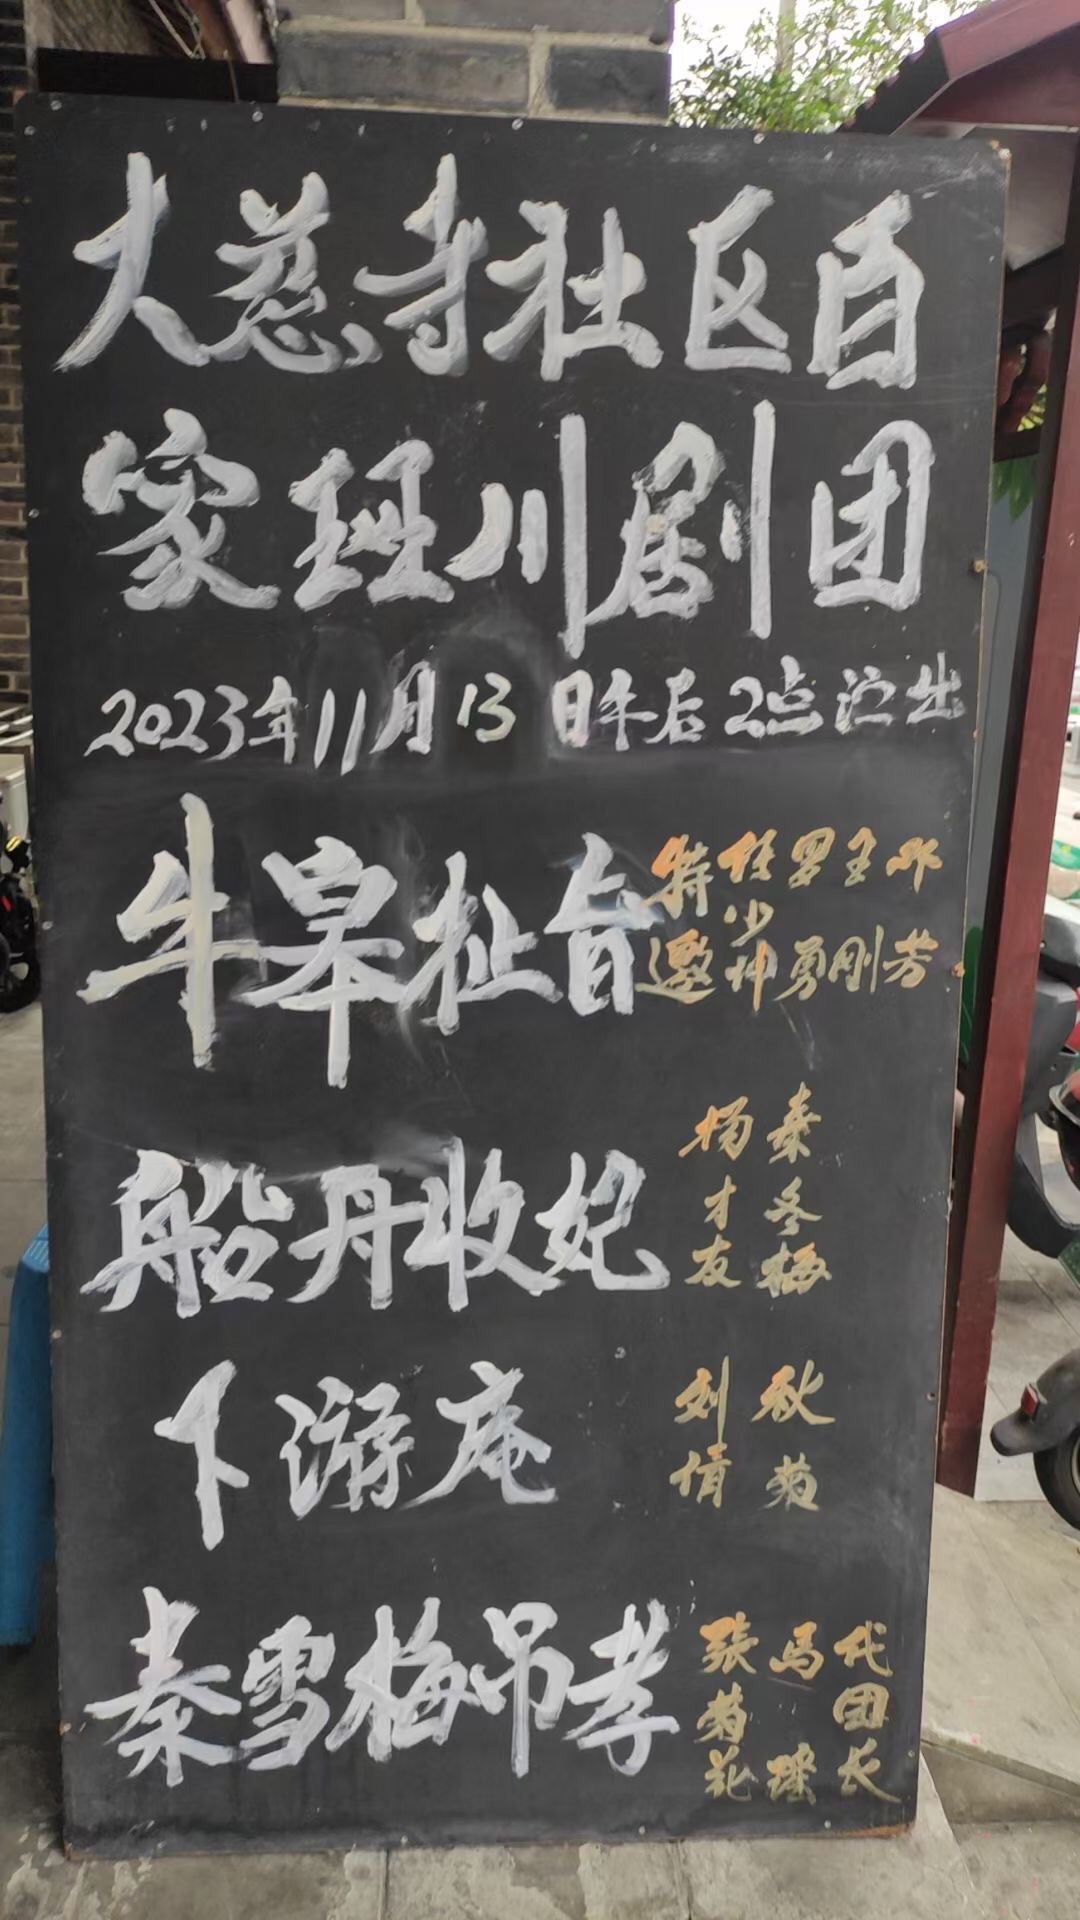 大慈寺社区百
家班川剧团
2023年11月13日午后2点演出
牛皋扯旨
特邀 任少冲 罗勇 王刚 邓芳
船舟收妃
杨才友 秦冬梅
下游庵
刘倩 秋菊
秦雪梅吊孝
张菊花 马瑶 代团长